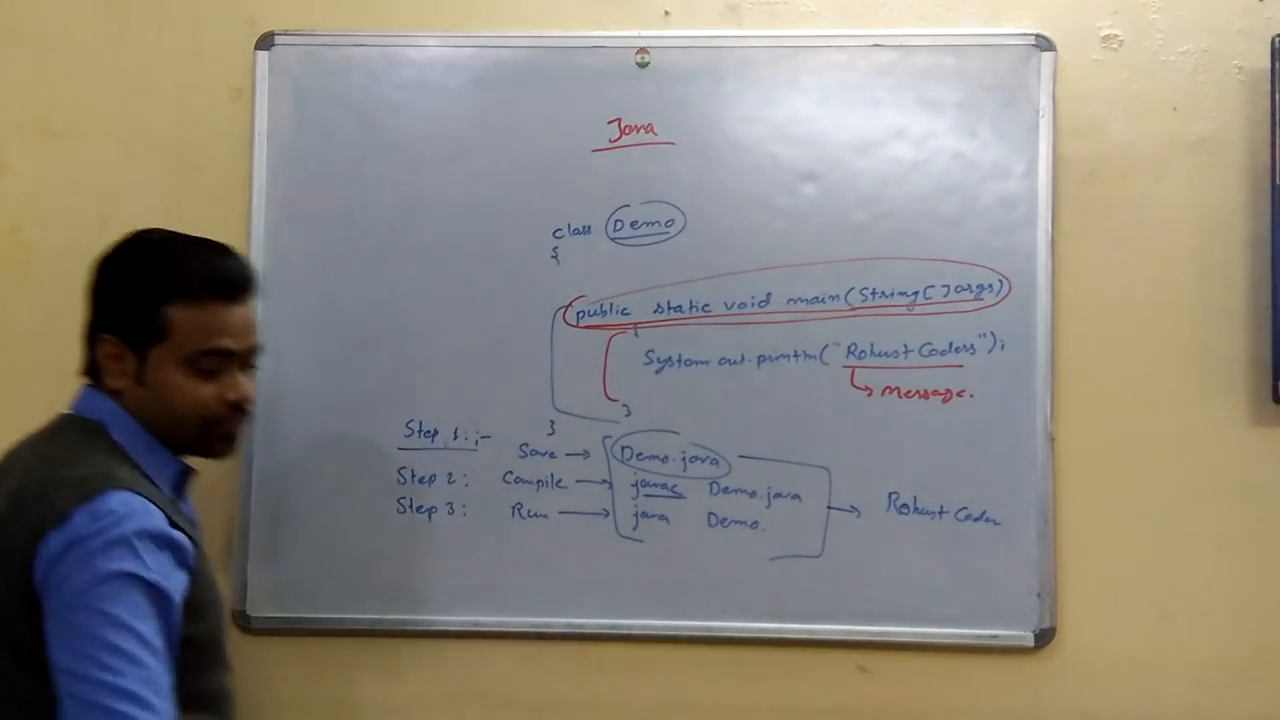 Java
class Demo
{
public static void main(String[] args)
{
System.out.println("Robust Coders");
→ Message.
}
}
Step 1:- Save → Demo.java
Step 2: Compile → javac Demo.java
Step 3: Run → java Demo. → Robust Coder